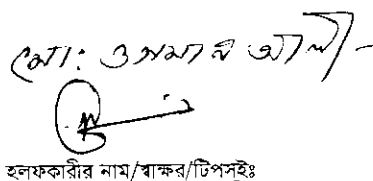 মো: ওসমান আলী
হলফকারীর নাম/স্বাক্ষর/টিপসইঃ